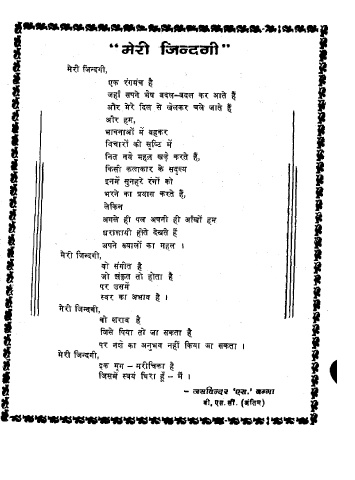 "मेरी जिन्दगी"
मेरी जिन्दगी,
एक रंगमंच है
जहाँ सपने भेष बदल-बदल कर आते हैं
और मेरे दिल से खेलकर चले जाते हैं
और हम,
भावनाओं में बहकर
विचारों की सृष्टि में
नित नये महल खड़े करते हैं,
किसी कलाकार के सदृश्य
इनमें सुनहरे रंगों को
भरने का प्रयास करते हैं,
लेकिन
अगले ही पल अपनी ही आँखों हम
धराशायी होते देखते हैं
अपने ख्यालों का महल ।
मेरी जिन्दगी,
वो संगीत है
जो झंकृत तो होता है
पर उसमें
स्वर का अभाव है ।
मेरी जिन्दगी,
वो शराब है
जिसे पिया तो जा सकता है
पर नशे का अनुभव नहीं किया जा सकता ।
मेरी जिन्दगी,
इक मृग - मरीचिका है
जिसमें स्वयं घिरा हूँ - मैं ।
- जसविन्दर 'एस.' बग्गा
बी, एस. सी. (अंतिम)